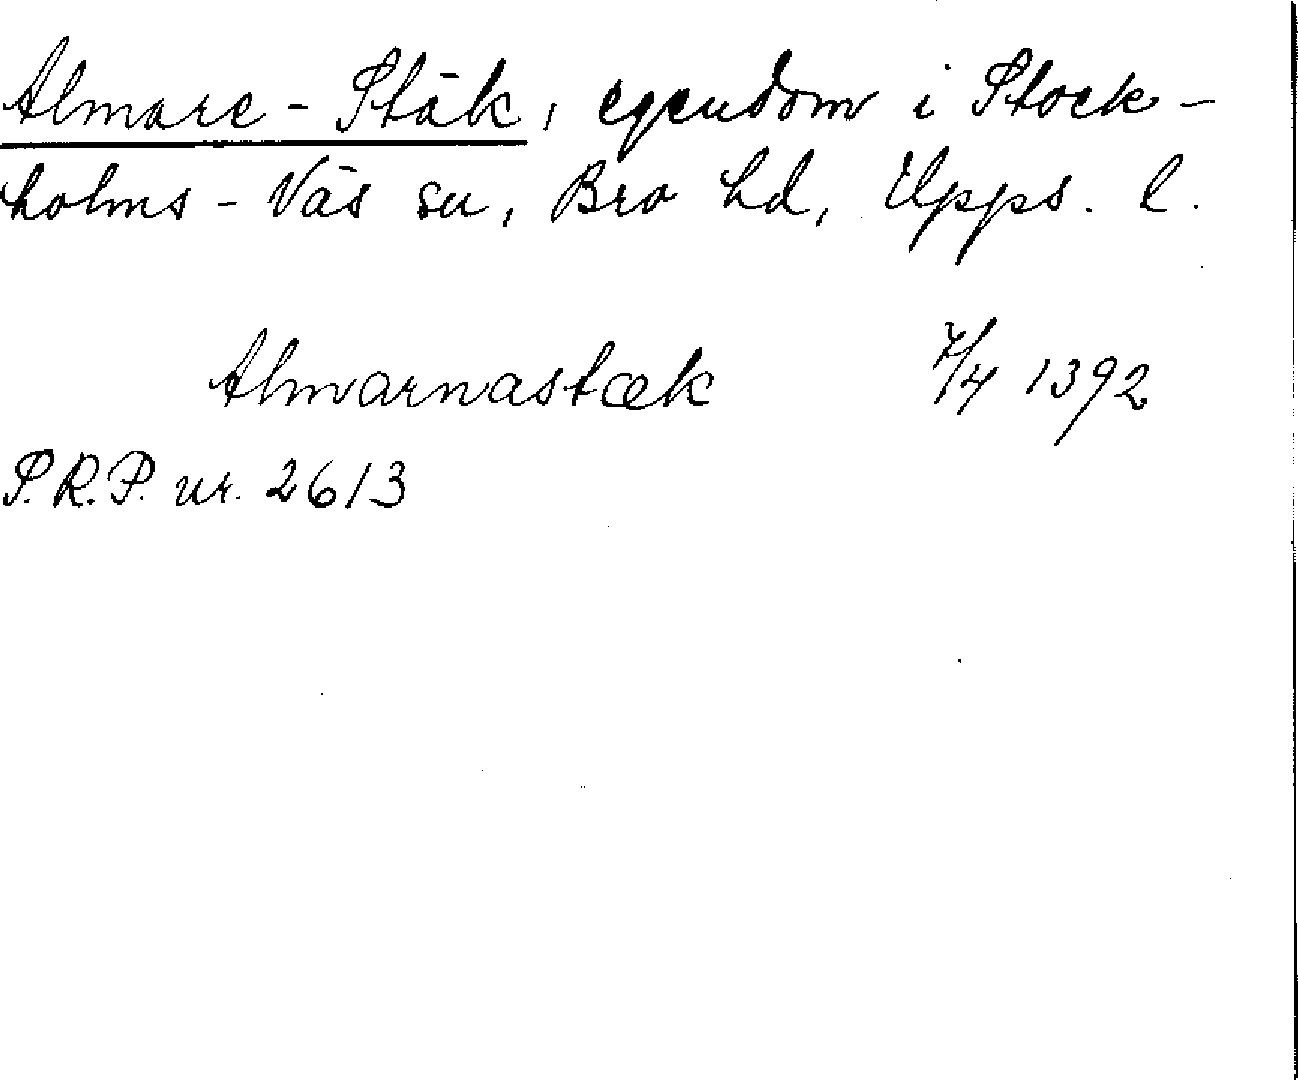 Almare-Stäk, egendom i Stock-
holms-Näs sn, Bro hd, Upps. l.
Almarnastæk 7/4 1392
S.R.P. nr. 2613